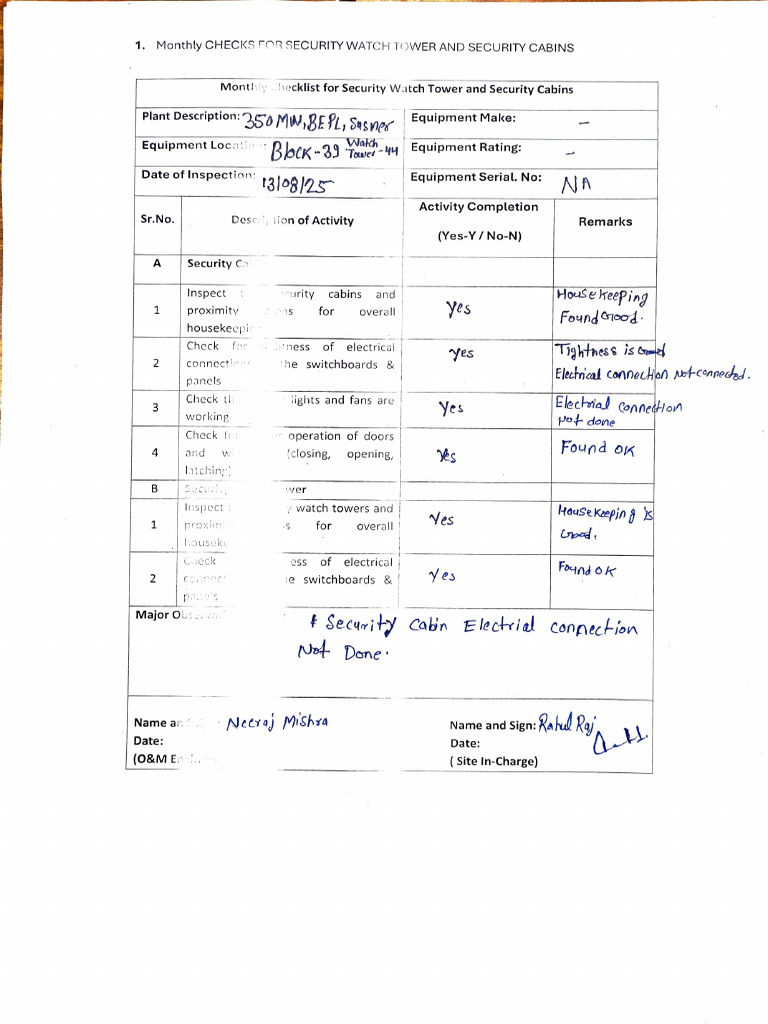 1. Monthly CHECKS FOR SECURITY WATCH TOWER AND SECURITY CABINS
Monthly Checklist for Security Watch Tower and Security Cabins
Plant Description: 350 MW, BEPL, Susner
Equipment Make: –
Equipment Location: Block-39 Watch Tower-44
Equipment Rating: –
Date of Inspection: 13/08/25
Equipment Serial. No: NA
Sr.No. Description of Activity Activity Completion (Yes-Y / No-N) Remarks
A Security
1 Inspect security cabins and Yes House keeping
proximity for overall Found Good.
housekeeping
2 Check for tness of electrical Yes Tightness is Good
connections the switchboards & Electrical connection Not-connected.
panels
3 Check th lights and fans are Yes Electrial connection
working Not done
4 Check for operation of doors Yes Found OK
and w (closing, opening,
latching)
B Security wer
1 Inspect y watch towers and Yes Housekeeping is
proximity s for overall Good.
houseke
2 Check ess of electrical Yes Found OK
connect e switchboards &
panels
Major Observ
* Security Cabin Electrial connection
Not Done.
Name and Neeraj Mishra
Name and Sign: Rahul Raj
Date:
Date:
(O&M En
( Site In-Charge)